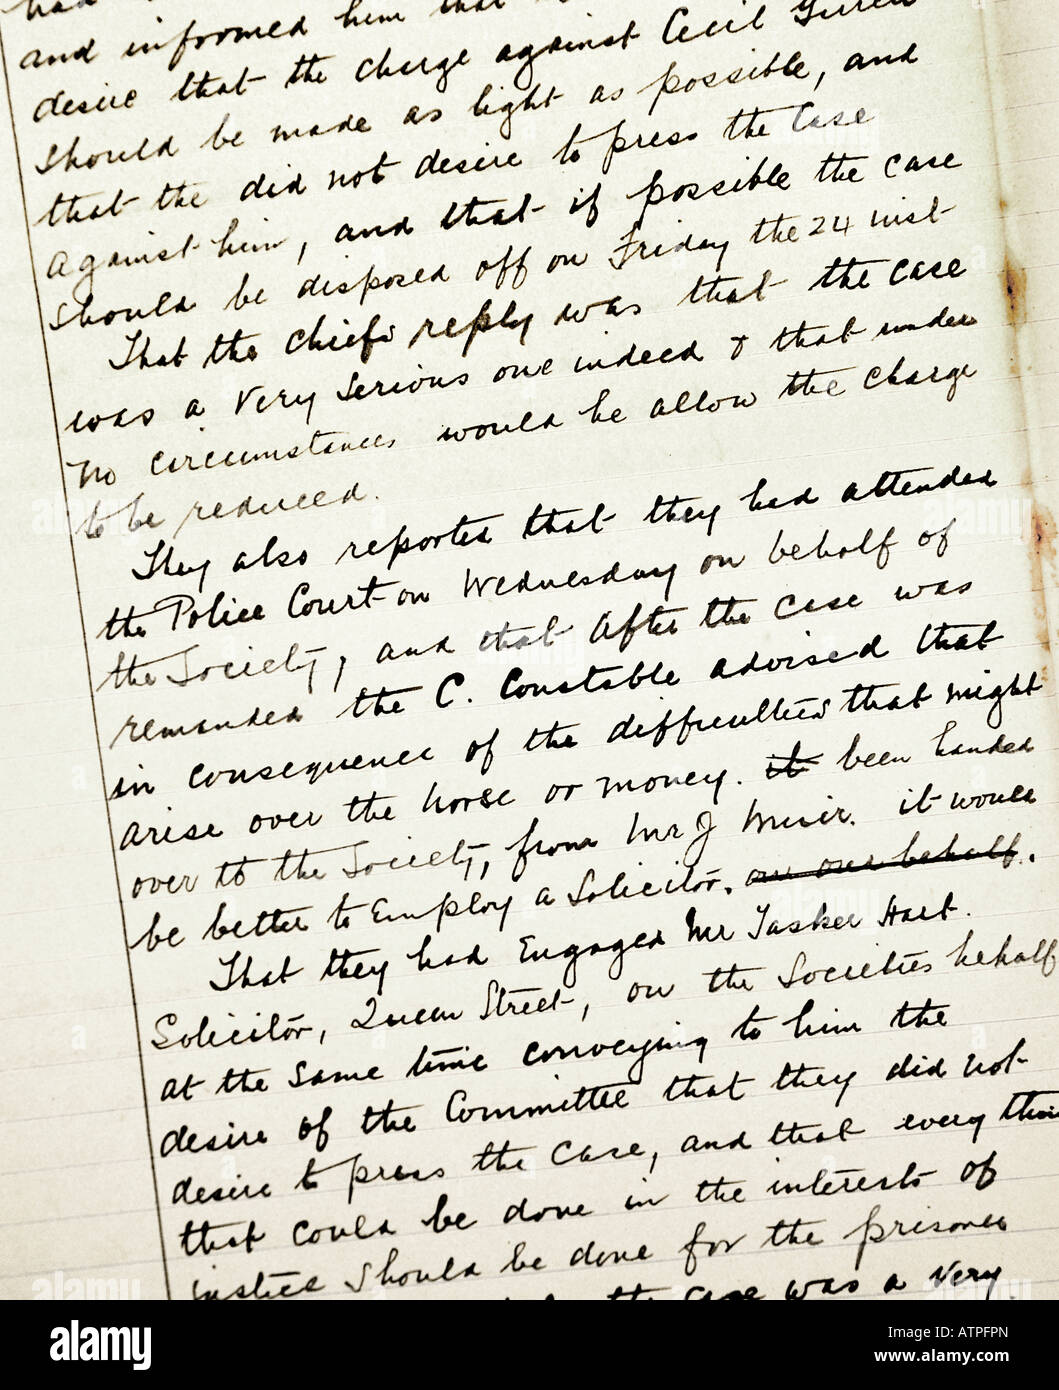 had
and informed him that
desire that the charge against Cecil
should be made as light as possible, and
that the did not desire to press the Case
against him, and that if possible the case
should be disposed off on Friday the 24 inst
That the Chiefs reply was that the case
was a Very Serious one indeed & that under
no circumstances would he allow the charge
to be reduced.
They also reported that they had attended
the Police Court on Wednesday on behalf of
the Society, and that after the case was
remanded the C. Constable advised that
in consequence of the difficulties that might
arise over the horse or money. it been handed
over to the Society, from Mr J Muir. it would
be better to Employ a Solicitor. on our behalf.
That they had Engaged Mr Tasker Hart.
Solicitor, Queen Street, on the Societies behalf
at the same time conveying to him the
desire of the Committee that they did not
desire to press the case, and that every thin
that could be done in the interests of
justice should be done for the prisoner
the case was a Very
alamy
Image ID: ATPFPN
www.alamy.com